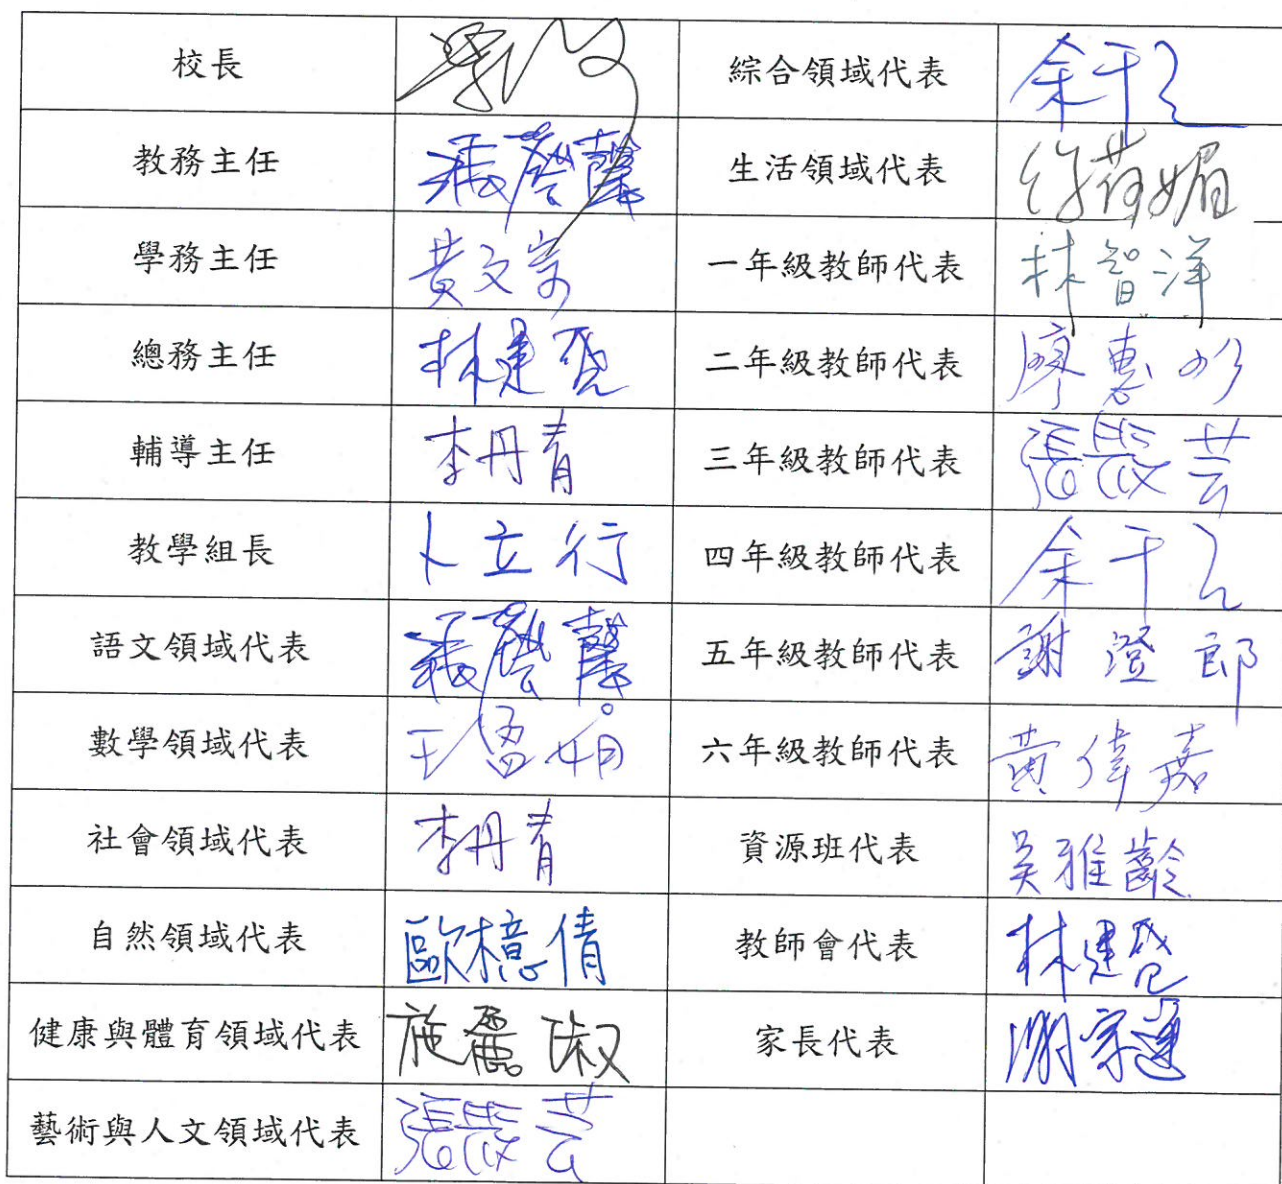 校長 綜合領域代表 余千
教務主任 馨 生活領域代表 徐荷媚
學務主任 黃文宗 一年級教師代表 林智洋
總務主任 林建 二年級教師代表 廖惠彣
輔導主任 李丹青 三年級教師代表 張 芸
教學組長 卜立行 四年級教師代表 余千
語文領域代表 馨 五年級教師代表 謝澄郎
數學領域代表 王 娟 六年級教師代表 黃偉嘉
社會領域代表 李丹青 資源班代表 吳雅齡
自然領域代表 歐檍倩 教師會代表 林建
健康與體育領域代表 施麗琡 家長代表
藝術與人文領域代表 張 芸